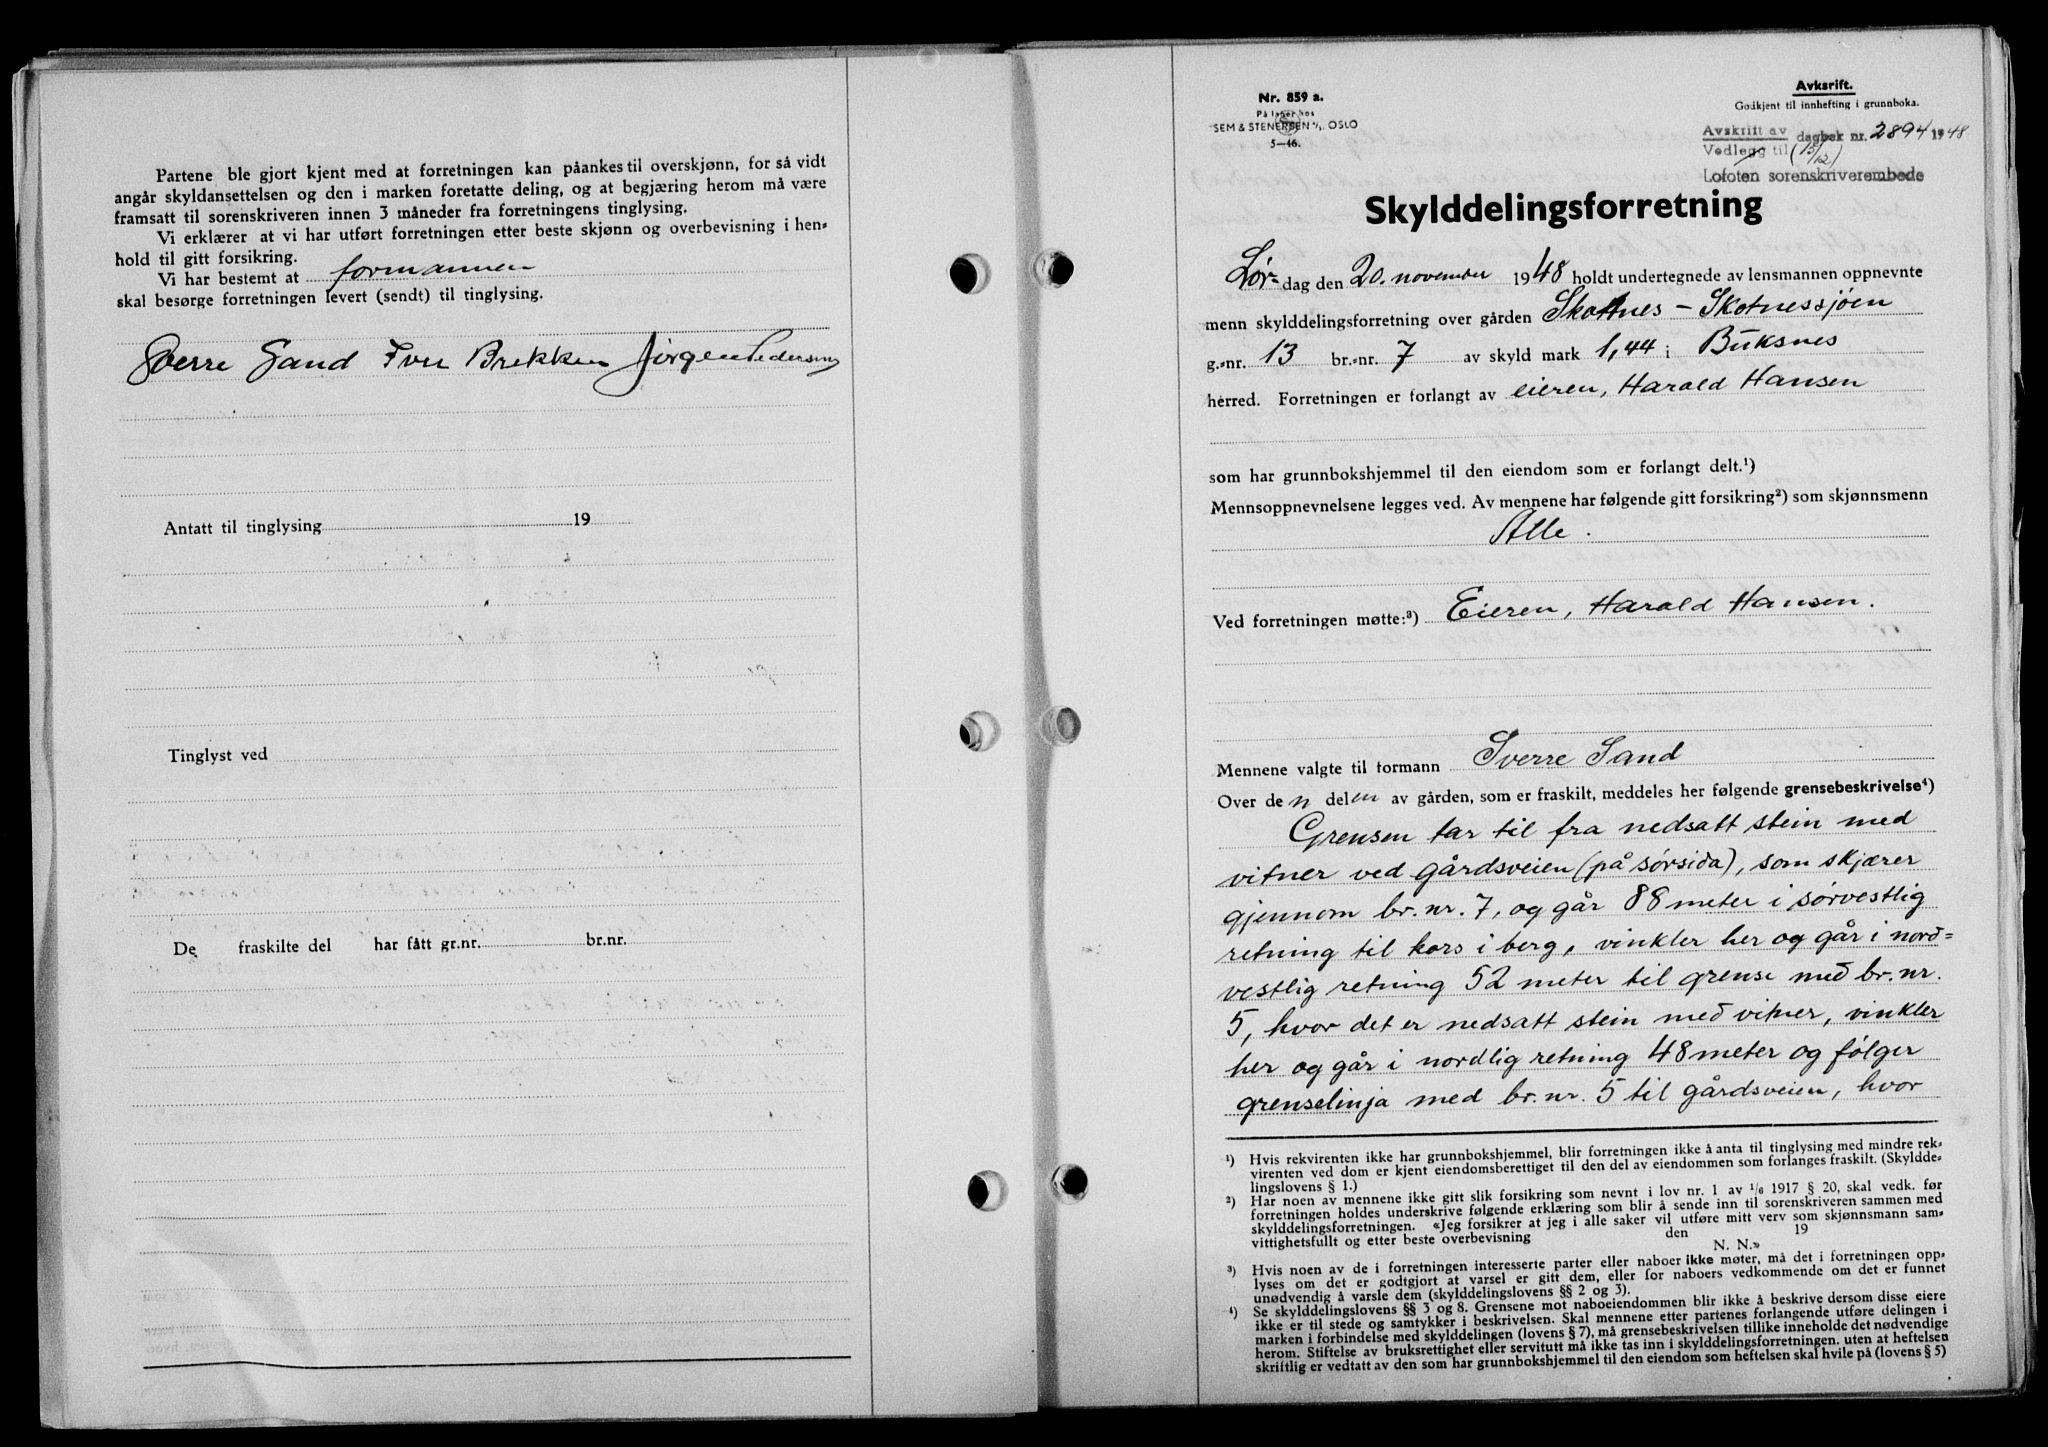 Partene ble gjort kjent med at forretningen kan påankes til overskjønn, for så vidt
angår skyldansettelsen og den i marken foretatte deling, og at begjæring herom må være
framsatt til sorenskriveren innen 3 måneder fra forretningens tinglysing.
Vi erklærer at vi har utført forretningen etter beste skjønn og overbevisning i hen-
hold til gitt forsikring.
Vi har bestemt at formannen
skal besørge forretningen levert (sendt) til tinglysing.
Sverre Sand Iver Brekken Jørgen Pedersen
Antatt til tinglysing 19
Tinglyst ved
De fraskilte del har fått gr.nr. br.nr.
Nr. 859 a.
På lager hos
SEM & STENERSEN A/S, OSLO
5-46.
Avksrift.
Godkjent til innhefting i grunnboka.
Avskrift av dagbok nr. 2894 1948
Vedlegg til (15/12)
Lofoten sorenskriverembede
Skylddelingsforretning
Lør- dag den 20. november 1948 holdt undertegnede av lensmannen oppnevnte
menn skylddelingsforretning over gården Skottnes - Skotnessjøen
g.-nr. 13 br.-nr. 7 av skyld mark 1,44 i Buksnes
herred. Forretningen er forlangt av eieren, Harald Hansen
som har grunnbokshjemmel til den eiendom som er forlangt delt.¹)
Mennsoppnevnelsene legges ved. Av mennene har følgende gitt forsikring²) som skjønnsmenn
Alle.
Ved forretningen møtte:³) Eieren, Harald Hansen.
Mennene valgte til formann Sverre Sand
Over de n del en av gården, som er fraskilt, meddeles her følgende grensebeskrivelse⁴)
Grensen tar til fra nedsatt stein med
vitner ved gårdsveien (på sørsida), som skjærer
gjennom br. nr. 7, og går 88 meter i sørvestlig
retning til kors i berg, vinkler her og går i nord-
vestlig retning 52 meter til grense med br. nr.
5, hvor det er nedsatt stein med vitner, vinkler
her og går i nordlig retning 48 meter og følger
grenselinja med br. nr. 5 til gårdsveien, hvor
¹) Hvis rekvirenten ikke har grunnbokshjemmel, blir forretningen ikke å anta til tinglysing med mindre rek-
virenten ved dom er kjent eiendomsberettiget til den del av eiendommen som forlanges fraskilt. (Skyldde-
lingslovens § 1.)
²) Har noen av mennene ikke gitt slik forsikring som nevnt i lov nr. 1 av 1/6 1917 § 20, skal vedk. før
forretningen holdes underskrive følgende erklæring som blir å sende inn til sorenskriveren sammen med
skylddelingsforretningen. «Jeg forsikrer at jeg i alle saker vil utføre mitt verv som skjønnsmann sam-
vittighetsfullt og etter beste overbevisning den 19
N. N.»
³) Hvis noen av de i forretningen interesserte parter eller naboer ikke møter, må det i forretningen opp-
lyses om det er godtgjort at varsel er gitt dem, eller for naboers vedkommende om det er funnet
unødvendig å varsle dem (skylddelingslovens §§ 2 og 3).
⁴) Se skylddelingslovens §§ 3 og 8. Grensene mot naboeiendommen blir ikke å beskrive dersom disse eiere
ikke er til stede og samtykker i beskrivelsen. Skal mennene etter partenes forlangende utføre delingen i
marken i forbindelse med skylddelingen (lovens § 7), må grensebeskrivelsen tillike inneholde det nødvendige
herom. Stiftelse av bruksrettighet eller servitutt må ikke tas inn i skylddelingsforretningen. uten at heftelsen
skriftlig er vedtatt av den som har grunnbokshjemmel til den eiendom som heftelsen skal hvile på (lovens § 5)